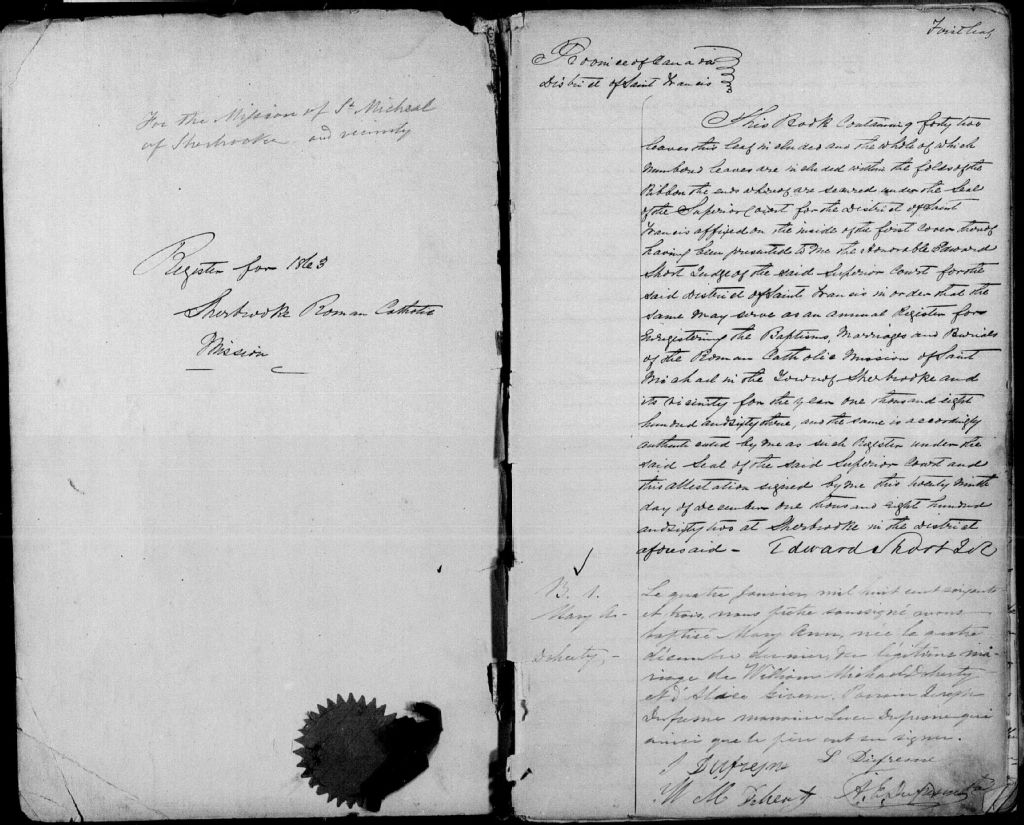 For the Mission of St Micheal
of Sherbrooke and vicinity
Register for 1863
Sherbrooke Roman Catholic
Mission
First leaf
Province of Canada
District of Saint Francis
This Book Containing forty two
leaves this leaf included and the whole of which
numbered leaves are included within the folds of the
Ribbon the ends whereof are secured under the Seal
of the Superior Court for the District of Saint
Francis affixed on the inside of the first cover thereof
having been presented to me the Honorable Edward
Short Judge of the said Superior Court for the
said District of Saint Francis in order that the
same may serve as an annual Register for
Enregistering the Baptisms, Marriages and Burials
of the Roman Catholic Mission of Saint
Michael in the Town of Sherbrooke and
its vicinity for the year one thousand eight
hundred and sixty three, and the same is accordingly
authenticated by me as such Register under the
said Seal of the said Superior Court and
this attestation signed by me this twenty ninth
day of December one thousand eight hundred
and sixty two at Sherbrooke in the district
aforesaid - Edward Short
B. 1.
Mary A-
Doherty,-
Le quatre Janvier mil huit cent soixante
et trois, nous prêtre soussigné avons
baptisé Mary Ann, née le quatre
décembre dernier, du légitime ma-
riage de William Michael Doherty
et d'Alice Parrain Joseph
Dufresne marraine Luce Dufresne qui
ainsi que le père ont su signer.
J Dufresne L Dufresne
W M Doherty A. E. Dufresne